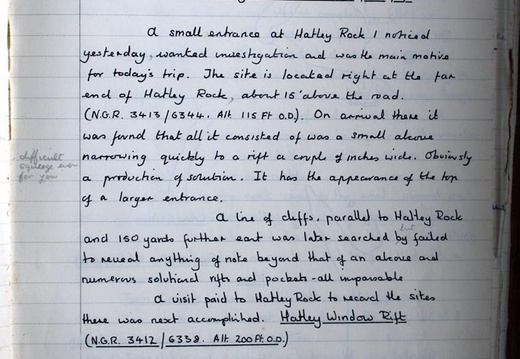 A small entrance at Hatley Rock I noticed
yesterday, wanted investigation and was the main motive
for today's trip. The site is located right at the far
end of Hatley Rock, about 15' above the road.
(N.G.R. 3413/6344. Alt. 115 Ft O.D). On arrival there it
was found that all it consisted of was a small alcove
difficult
narrowing quickly to a rift a couple of inches wide. Obviously
squeeze even
a production of solution. It has the appearance of the top
for you
of a larger entrance.
A line of cliffs, parallel to Hatley Rock
but
and 150 yards further east was later searched by failed
to reveal anything of note beyond that of an alcove and
numerous solutional rifts and pockets - all impassable
A visit paid to Hatley Rock to record the sites
there was next accomplished. Hatley Window Rift
(N.G.R. 3412/6338. Alt. 200 Ft. O.D.)